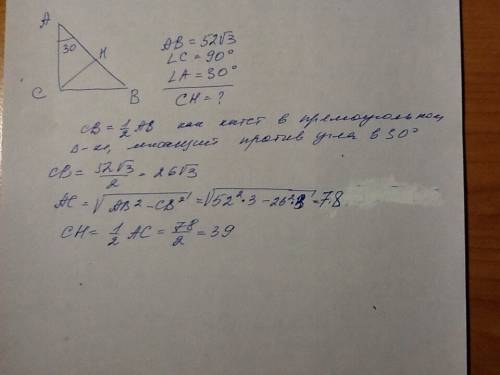 A
30
H
C
B
AB = 52√3
∠C = 90°
∠A = 30°
CH = ?
CB = 1/2 AB как катет в прямоугольном
Δ-ке, лежащий против угла в 30°
CB = 52√3/2 = 26√3
AC = √(AB² - CB²) = √(52²·3 - 26²·3) = 78
CH = 1/2 AC = 78/2 = 39